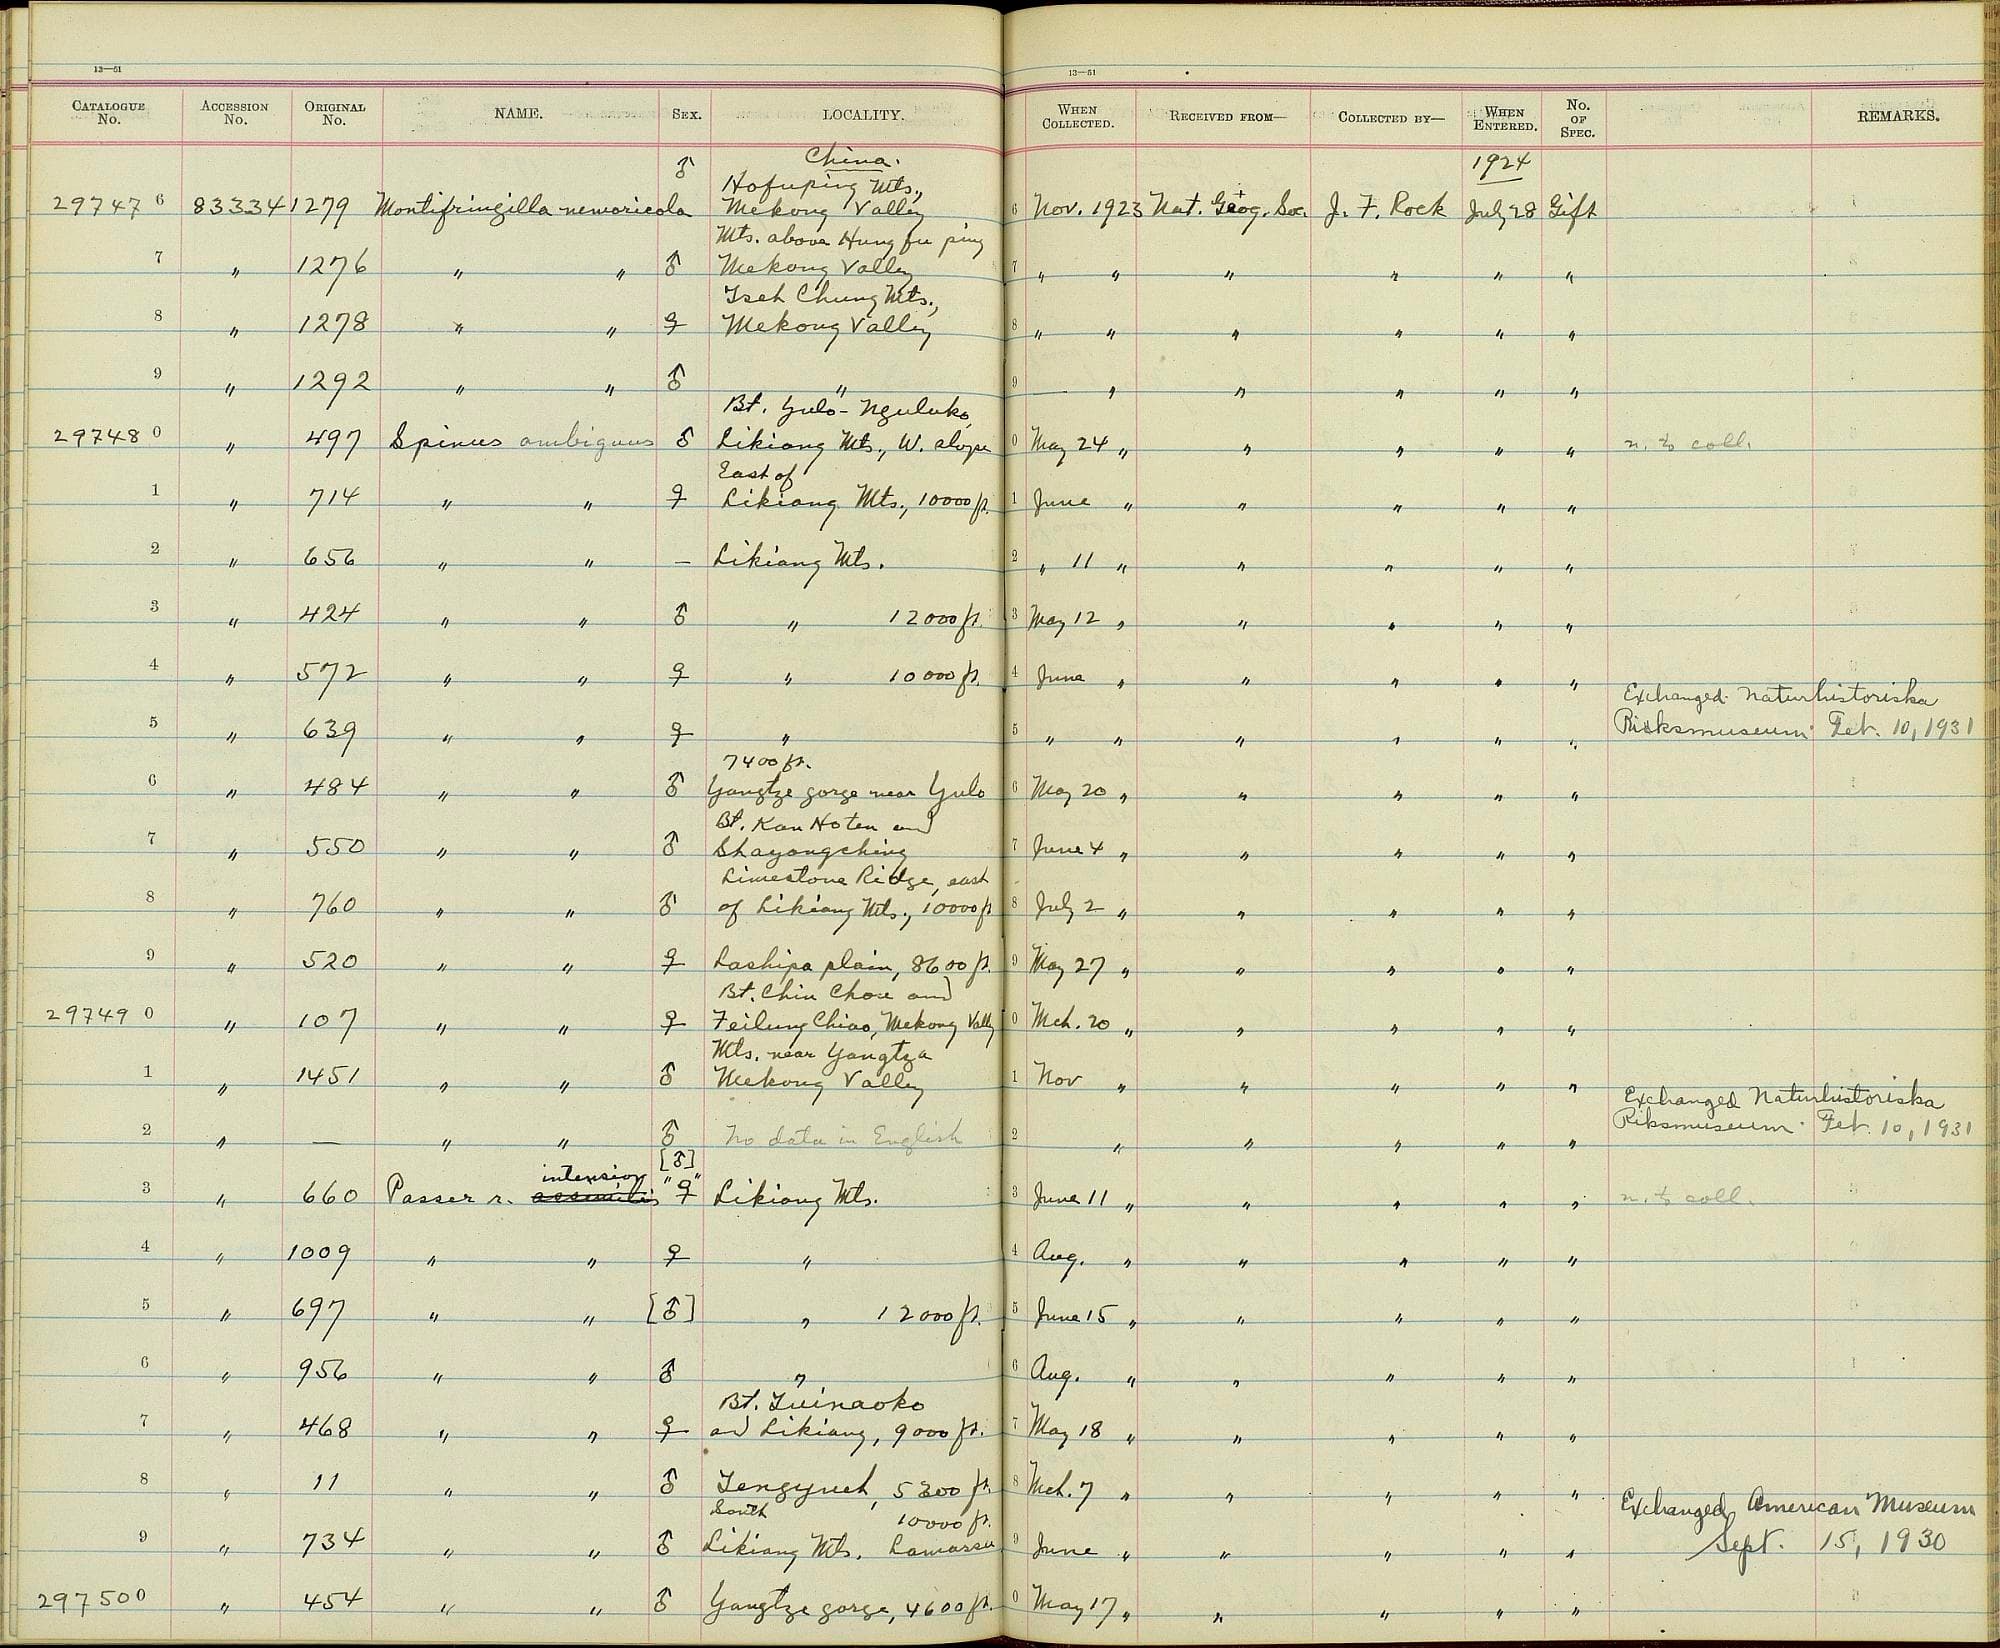 13—51 13—51
CATALOGUE No. ACCESSION No. ORIGINAL No. NAME. SEX. LOCALITY. WHEN COLLECTED. RECEIVED FROM— COLLECTED BY— WHEN ENTERED. No. OF SPEC. REMARKS.
China. 1924
♂ Hofuping Mts.,
29747 6 83334 1279 Montifringilla nemoricola Mekong Valley 6 Nov. 1923 Nat. Geog. Soc. J. F. Rock July 28 Gift
Mts. above Hung fu ping
7 " 1276 " " ♂ Mekong Valley 7 " " " " " "
Tseh Chung Mts.,
8 " 1278 " " ♀ Mekong Valley 8 " " " " " "
9 " 1292 " " ♂ " 9 — " " " " "
Bt. Yulo - Nguluko,
29748 0 " 497 Spinus ambiguus ♂ Likiang Mts., W. slope 0 May 24 " " " " " n. to coll.
East of
1 " 714 " " ♀ Likiang Mts., 10000 ft. 1 June " " " " "
2 " 656 " " — Likiang Mts. 2 " 11 " " " " "
3 " 424 " " ♂ " 12000 ft. 3 May 12 " " " " "
4 " 572 " " ♀ " 10000 ft. 4 June " " " " "
Exchanged Naturhistoriska
5 " 639 " " ♀ " 5 " " " " " " Riksmuseum Feb. 10, 1931
7400 ft.
6 " 484 " " ♂ Yangtze gorge near Yulo 6 May 20 " " " " "
Bt. Kan Ho ten and
7 " 550 " " ♂ Shayangching 7 June 4 " " " " "
Limestone Ridge, east
8 " 760 " " ♂ of Likiang Mts., 10000 ft 8 July 2 " " " " "
9 " 520 " " ♀ Lashipa plain, 8600 ft. 9 May 27 " " " " "
Bt. Chin Chou and
29749 0 " 107 " " ♀ Feilung Chiao, Mekong Vally 0 Mch. 20 " " " " "
Mts. near Yangtza
1 " 1451 " " ♂ Mekong Valley 1 Nov " " " " "
Exchanged Naturhistoriska
2 " — " " ♂ No data in English 2 " " " " " Riksmuseum. Feb. 10, 1931
intensior [♂]
3 " 660 Passer r. assimilis "♀" Likiang Mts. 3 June 11 " " " " " n. to coll.
4 " 1009 " " ♀ " 4 Aug. " " " " "
5 " 697 " " [♂] " 12000 ft. 5 June 15 " " " " "
6 " 956 " " ♂ " 6 Aug. " " " " "
Bt. Tuinaoko
7 " 468 " " ♀ and Likiang, 9000 ft. 7 May 18 " " " " "
8 " 11 " " ♂ Tengyueh, 5300 ft. 8 Mch. 7 " " " " " Exchanged American Museum
South 10000 ft.
9 " 734 " " ♂ Likiang Mts. Lamassu 9 June " " " " " Sept. 15, 1930
29750 0 " 454 " " ♂ Yangtze gorge, 4600 ft. 0 May 17 " " " " "